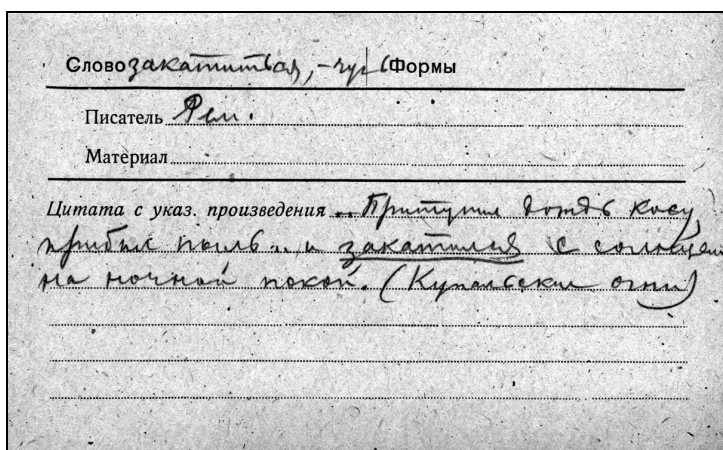 Слово закатиться, -чусь Формы
Писатель Рем.
Материал
Цитата с указ. произведения .. Притупил дождь косу
прибил пыль .. и закатился с солнцем
на ночной покой. (Купальские огни)